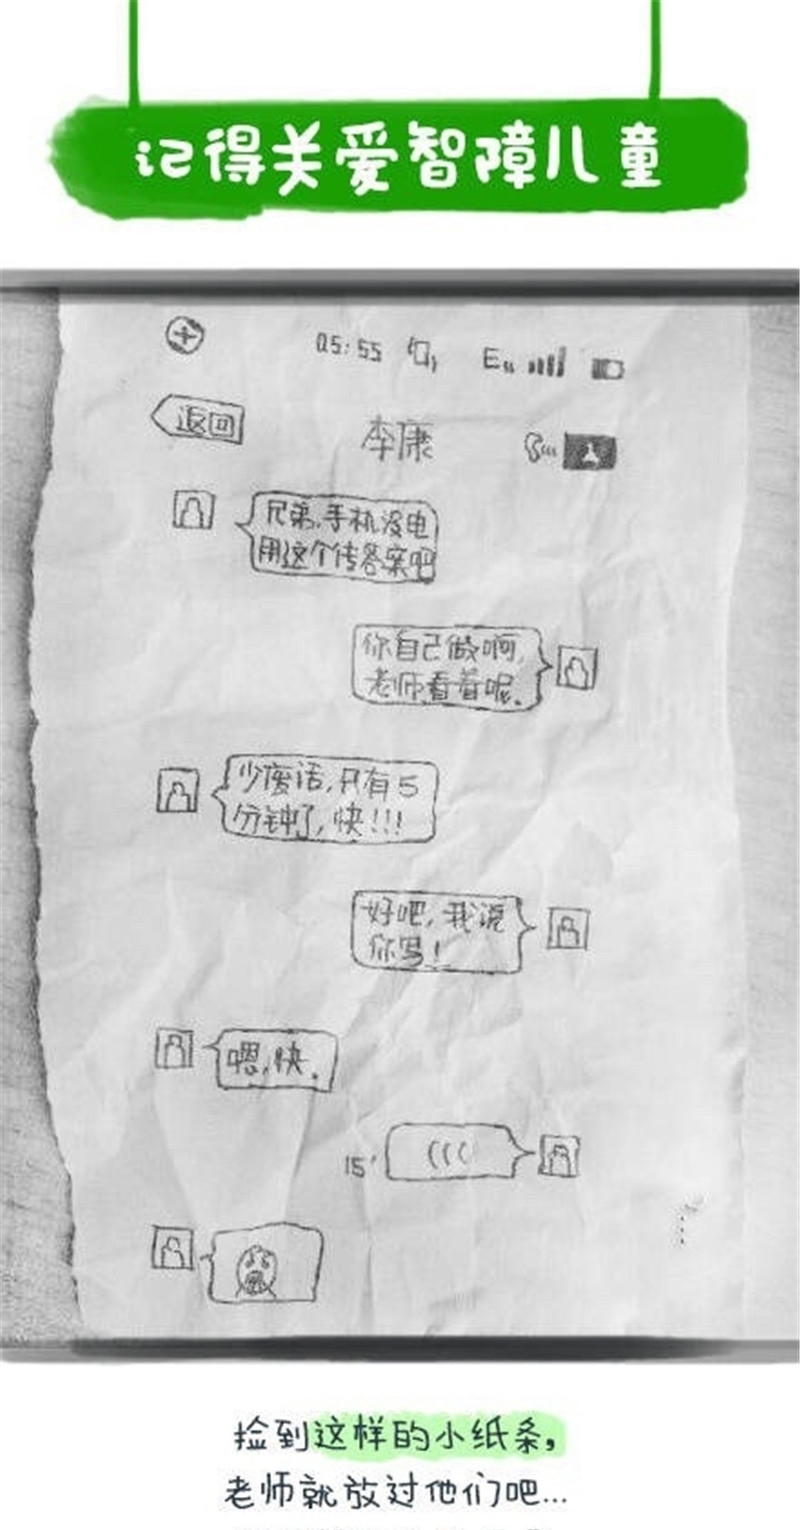 记得关爱智障儿童
05:55 E
返回 李康
兄弟,手机没电
用这个传答案吧
你自己做啊,
老师看着呢.
少废话,只有5
分钟了,快!!!
好吧,我说
你写!
嗯,快.
15'
捡到这样的小纸条,
老师就放过他们吧...